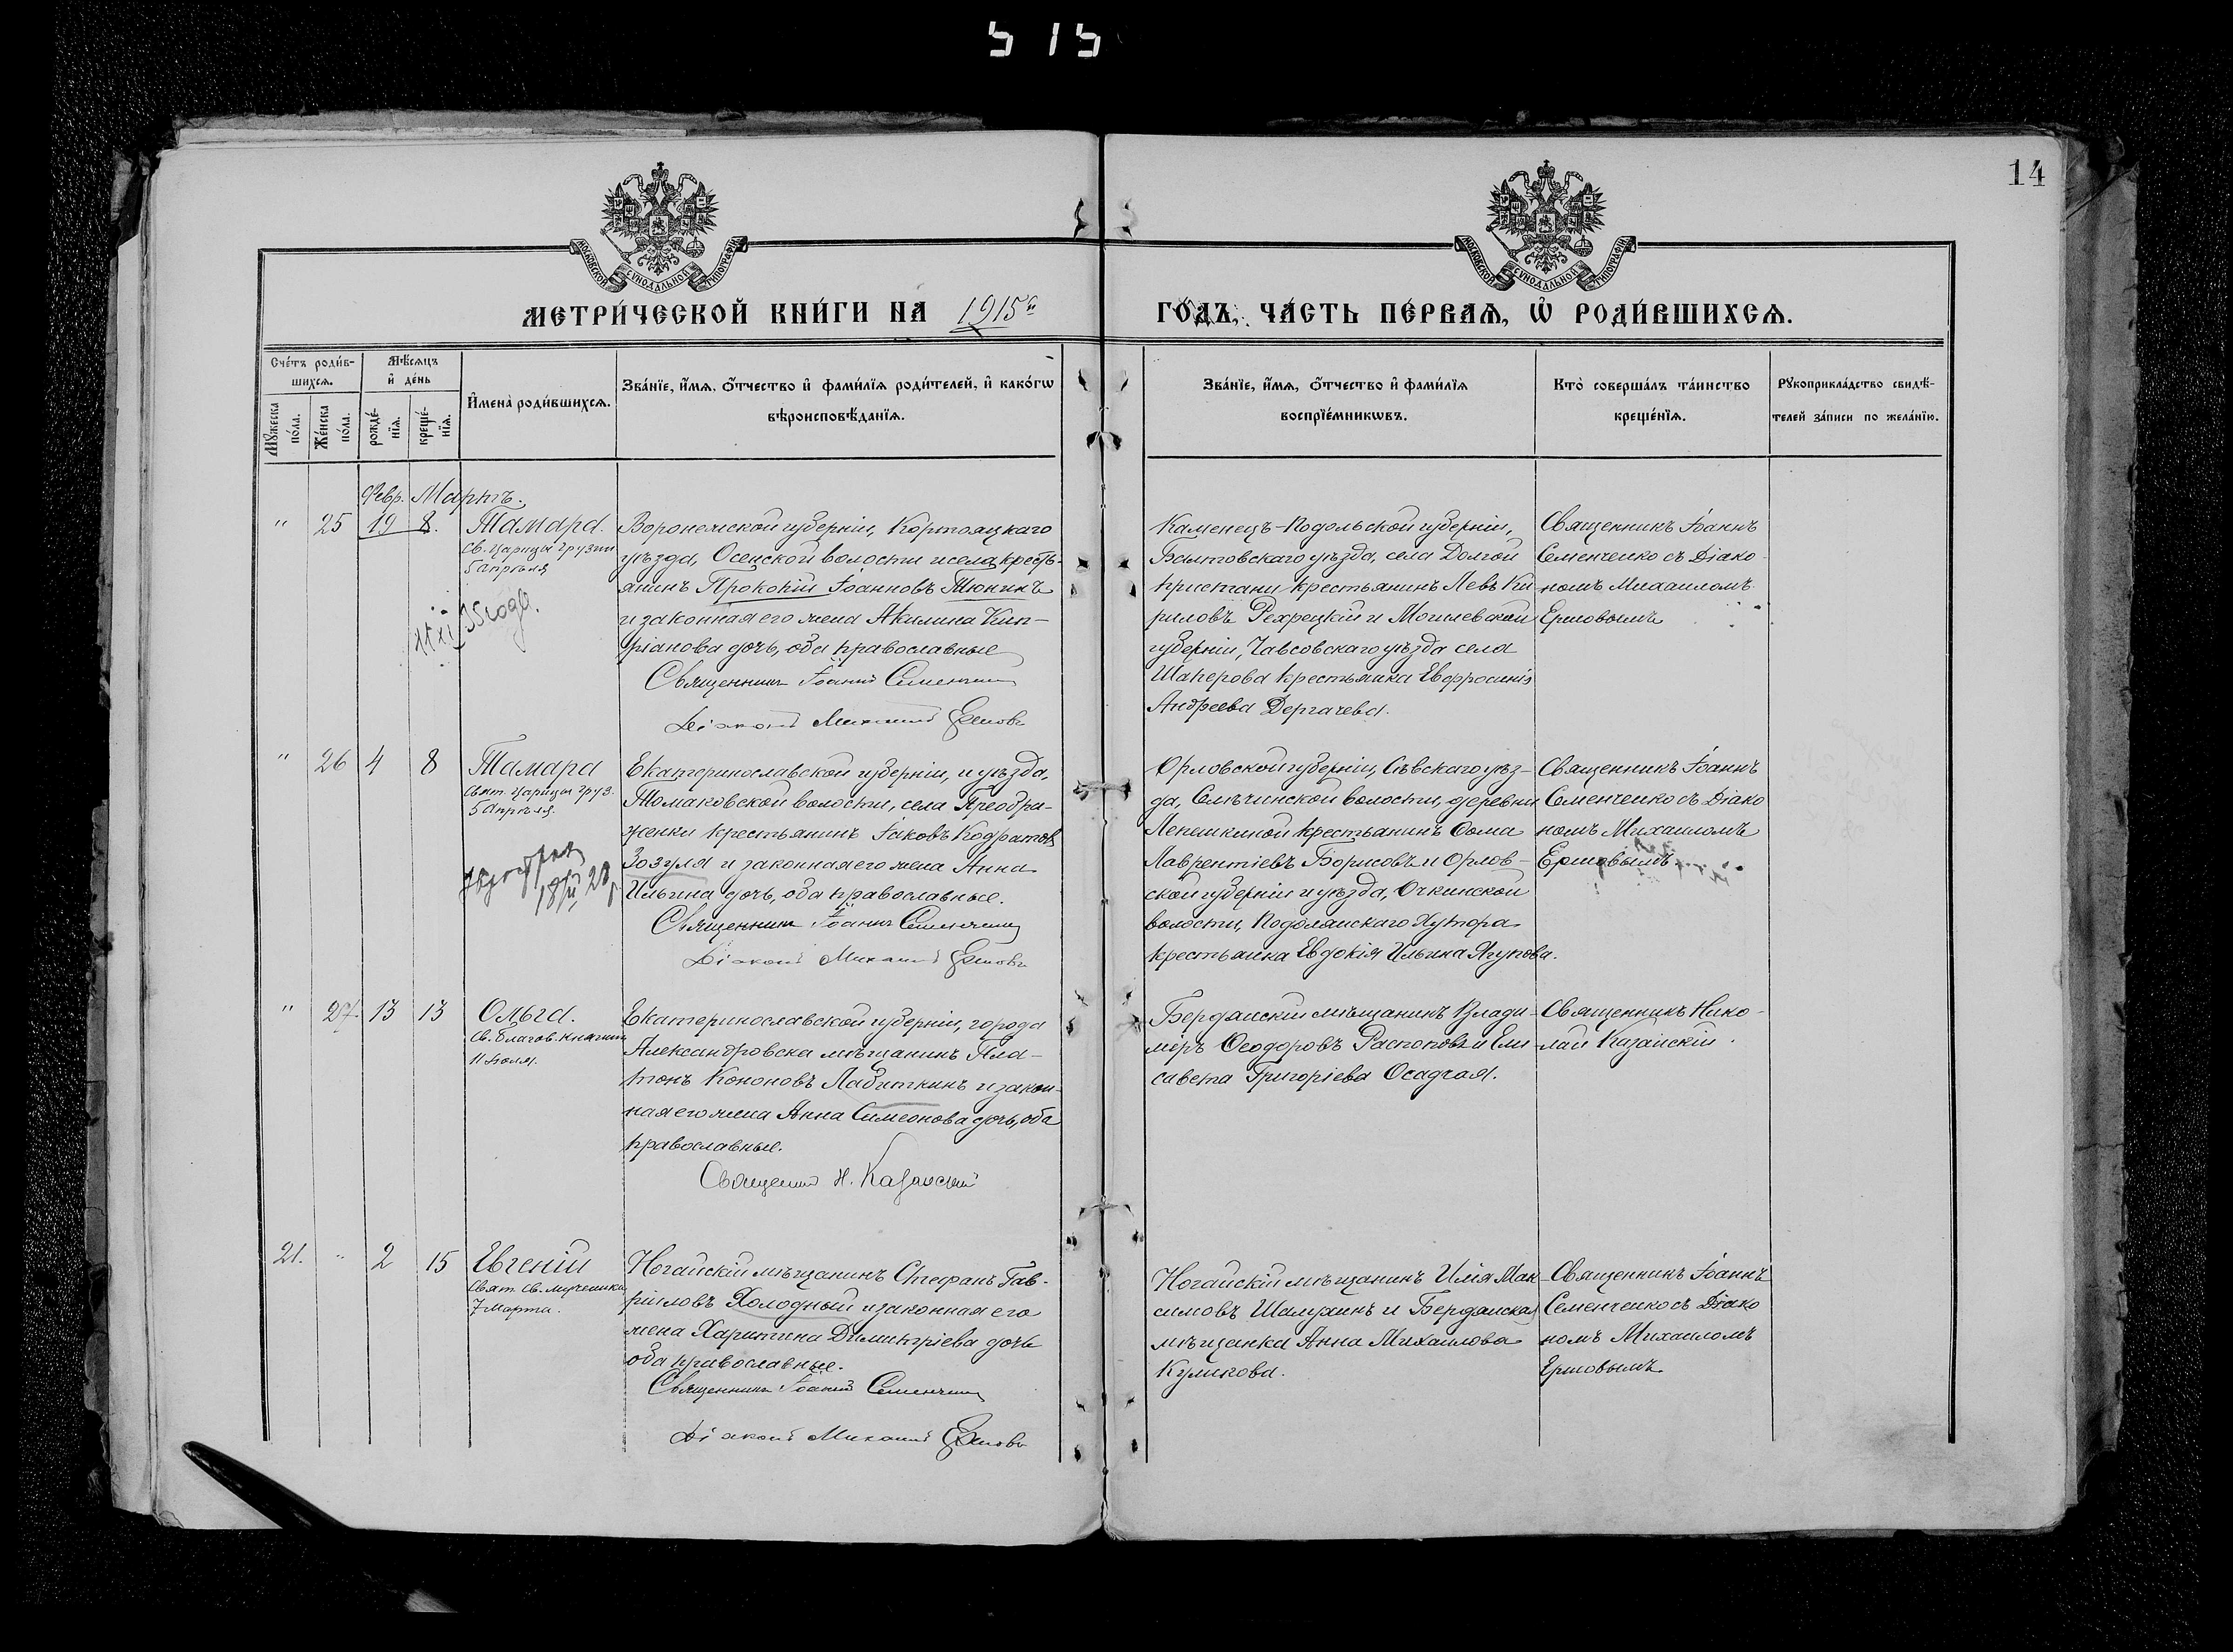 515
14
МОСКОВСКОЙ СУНОДАЛЬНОЙ ТИПОГРАФІИ
МОСКОВСКОЙ СУНОДАЛЬНОЙ ТИПОГРАФІИ
МЕТРИ́ЧЕСКОЙ КНИ́ГИ НА 1915й
ГО́ДЪ, ЧА́СТЬ ПЕ́РВАѦ, Ѡ҆ РОДИ́ВШИХСѦ.
Сче́тъ роди́в-
шихсѧ.
Мꙋ́жеска
по́ла.
Же́нска
по́ла.
Мѣ́сѧцъ
и҆ де́нь
рожде́-
нїѧ.
креще́-
нїѧ.
И҆мена̀ роди́вшихсѧ.
Зва́нїе, и҆́мѧ, ѻ҆́тчество и҆ фами́лїѧ роди́телей, и҆ како́гѡ
вѣроисповѣ́данїѧ.
Зва́нїе, и҆́мѧ, ѻ҆́тчество и҆ фами́лїѧ
воспрїе́мникѡвъ.
Кто̀ соверша́лъ та́инство
креще́нїѧ.
Рꙋкоприкла́дство свидѣ́-
телей за́писи по жела́нїю.
Февр. Мартъ.
" 25 19 8.
Тамара.
Св. Царицы Грузіи
5 апрѣля
Воронежской губерніи, Коротояцкаго
уѣзда, волости и села кресть-
янинъ Прокопій Іоанновъ Тюнинъ
и законная его жена Акилина Кип-
ріанова дочь, оба православные
Священникъ Іоаннъ Семенченко
Діаконъ Михаилъ Ершовъ
Каменецъ-Подольской губерніи,
Балтовскаго уѣзда, села Долгой
пристани крестьянинъ Левъ Ки-
риловъ и Могилевской
губерніи, Чавсовскаго уѣзда села
Шаперова крестьянка Евфросинія
Андреева Дергачева.
Священникъ Іоаннъ
Семенченко съ Діако-
номъ Михаиломъ
Ершовымъ
" 26 4 8
Тамара
Свят. Царицы Груз.
5 Апрѣля.
Екатеринославской губерніи, и уѣзда,
Томаковской волости, села Преобра-
женки крестьянинъ Іаковъ Кодратовъ
Зозуля и законная его жена Анна
Ильина дочь, оба православные.
Священникъ Іоаннъ Семенченко
Діаконъ Михаилъ Ершовъ
Орловской губерніи, Сѣвскаго уѣз-
да, волости, деревни
Лепешкиной крестьянинъ Ѳома
Лаврентіевъ Борисовъ и Орлов-
ской губерніи и уѣзда, Очкинской
волости, Подолянскаго Хутора
крестьянка Евдокія Ильина Ягупова.
Священникъ Іоаннъ
Семенченко съ Діако
номъ Михаиломъ
Ершовымъ
" 27. 13 13
Ольга.
Св. благов. княгини
11 Іюля.
Екатеринославской губерніи, города
Александровска мѣщанинъ Пла-
тонъ Кононовъ и закон-
ная его жена Анна Симеонова дочь, оба
православные.
Священникъ Н. Казанскій
Бердянскій мѣщанинъ Влади-
міръ Ѳеодоровъ Распоповъ и Ели-
савета Григоріева Осадчая.
Священникъ Нико-
лай Казанскій.
21. " 2 15
Евгеній
Свят. св. мученика
7 Марта.
Ногайскій мѣщанинъ Стефанъ Гав-
ріиловъ Холодный и законная его
жена Харитина Димитріева дочь
оба православные.
Священникъ Іоаннъ Семенченко
Діаконъ Михаилъ Ершовъ
Ногайскій мѣщанинъ Илія Мак-
симовъ и Бердянская
мѣщанка Анна Михаилова
Куликова.
Священникъ Іоаннъ
Семенченко съ Діако
номъ Михаиломъ
Ершовымъ